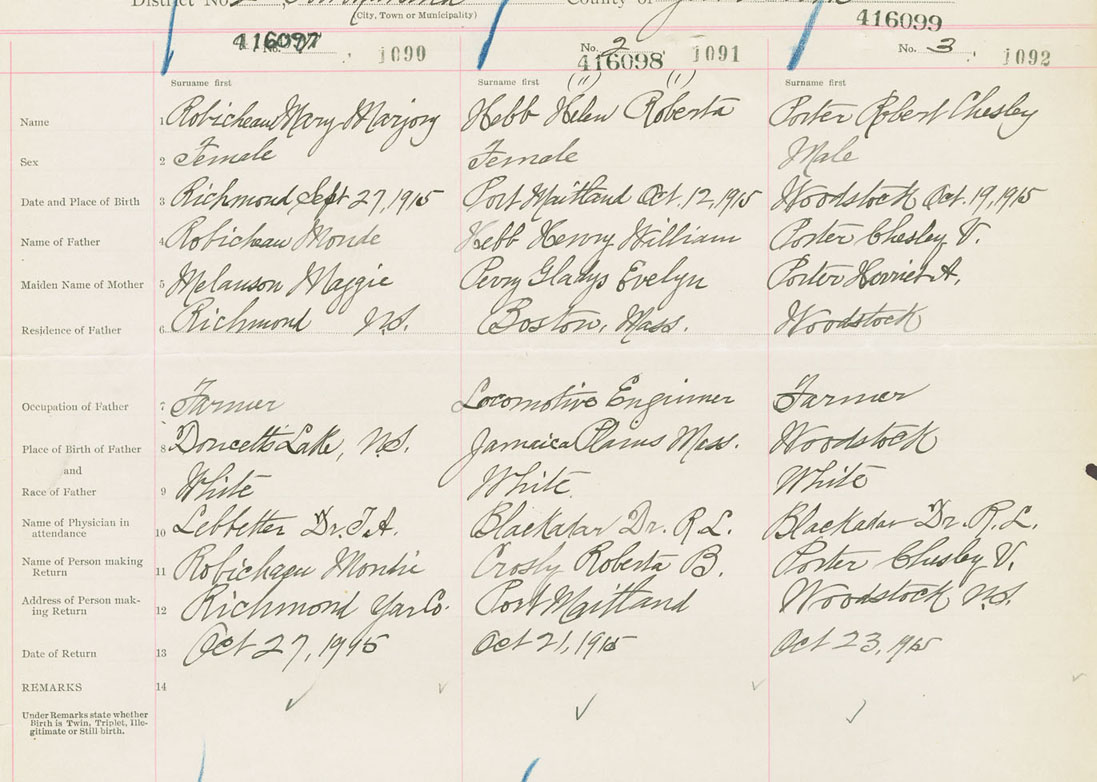 District No. 2 County of
(City, Town or Municipality)
416097 1090 No. 2 416098 1091 416099 No. 3 1092
Surname first Surname first (11) (1) Surname first
Name 1 Robicheau Mary Marjory Hebb Helen Roberta Porter Robert Chesley
Sex 2 Female Female Male
Date and Place of Birth 3 Richmond Sept 27, 1915 Port Maitland Oct. 12, 1915 Woodstock Oct. 19, 1915
Name of Father 4 Robicheau Monde Hebb Henry William Porter Chesley V.
Maiden Name of Mother 5 Melanson Maggie Perry Gladys Evelyn Porter Harriet A.
Residence of Father 6 Richmond N.S. Boston, Mass. Woodstock
Occupation of Father 7 Farmer Locomotive Enginner Farmer
Place of Birth of Father 8 Doucetts Lake, N.S. Jamaica Plains Mass. Woodstock
and
Race of Father 9 White White. White
Name of Physician in
attendance 10 Lebbetter Dr. T.A. Blackadar Dr. R.L. Blackadar Dr. R.L.
Name of Person making
Return 11 Robichaeu Montie Crosby Roberta B. Porter Chesley V.
Address of Person mak-
ing Return 12 Richmond Yar Co. Port Maitland Woodstock N.S.
Date of Return 13 Oct 27, 1915 Oct 21, 1915 Oct 23, 1915
REMARKS 14
Under Remarks state whether
Birth is Twin, Triplet, Ille-
gitimate or Still birth.